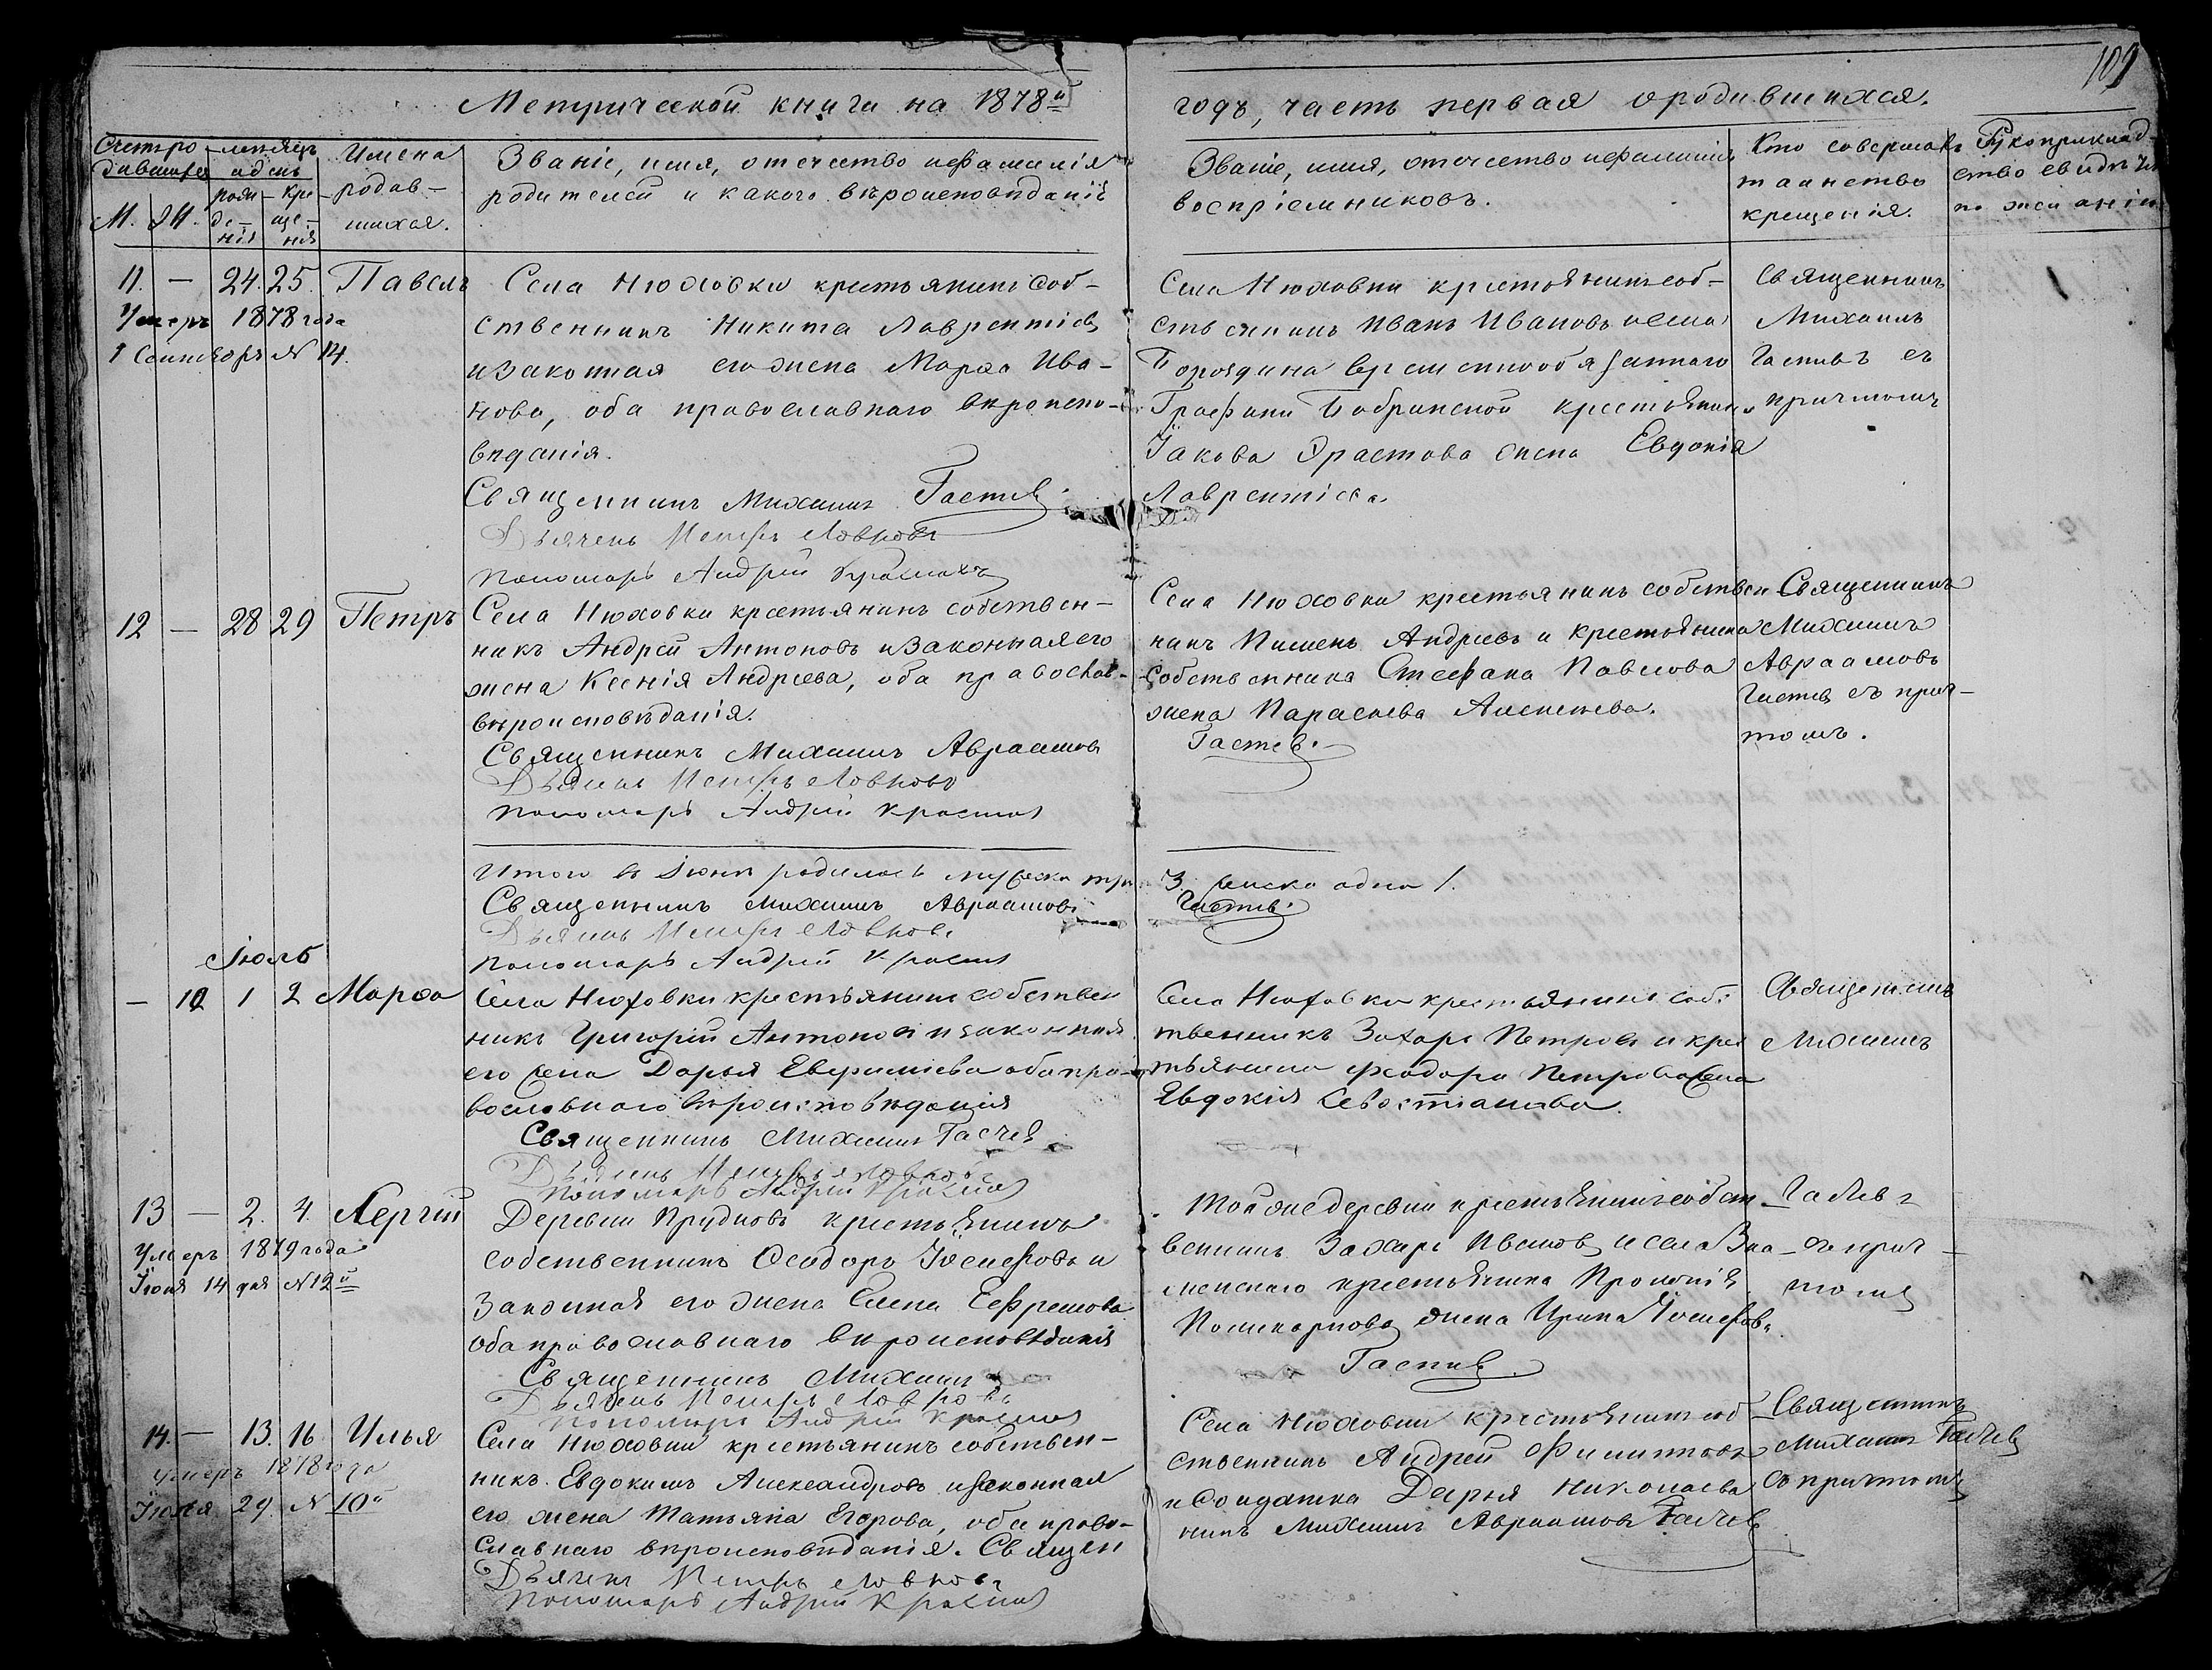 109
Метрической книги на 1878й
годъ, часть первая о родившихся.
Счетъ родившихся
М. Ж.
мѣсяцъ и день
рожде-нія
кре-ще-нія
Имена родив-шихся.
Званіе, имя, отечество и фамилія
родителей и какого вѣроисповѣданія
Званіе, имя, отечество и фамилія
воспріемниковъ.
Кто совершалъ
таинство
крещенія.
Рукоприклад-
ство свидѣте
по желанію
11. — 24. 25. Павелъ
Умеръ 1878 года
1 Сентябрѣ N 14.
Села Нюховки крестьянинъ соб-
ственникъ Никита Лаврентіевъ
и законная его жена Марѳа Ива-
нова, оба православнаго вѣроиспо-
вѣданія.
Священникъ Михаилъ Гастев
Дьячекъ Петръ Лавровъ
Пономарь Андрей
Села Нюховки крестьянинъ соб-
ственникъ Иванъ Ивановъ и села
временнообязаннаго
Графини Бобринской крестьянина
Іакова Ерастова жена Евдокія
Лаврентіева
Священникъ
Михаилъ
Гастевъ съ
причтомъ
12 — 28 29 Петръ
Села Нюховки крестьянинъ собствен-
никъ Андрей Антоновъ и законная его
жена Ксенія Андреева, оба православ-
вѣроисповѣданія.
Священникъ Михаилъ Авраамов
Дьячекъ Петръ Лавровъ
Пономарь Андрей
Села Нюховки крестьянинъ собствен
никъ Пименъ Андреевъ и крестьянина
собственника Стефана Павлова
жена Параскева Алексеева.
Гастев.
Священникъ
Михаилъ
Авраамовъ
Гастев съ прич-
томъ.
Итого въ Іюнѣ родилось мужеска три
3. женска одна 1.
Священникъ Михаилъ Авраамовъ
Гастев.
Дьячекъ Петръ Лавровъ
Пономарь Андрей
Іюль
— 10 1 2 Марѳа
Села Нюховки крестьянинъ собствен
никъ Григорій Антоновъ и законная
его жена Дарья Евѳиміева оба пра-
вославнаго вѣроисповѣданія
Священникъ Михаилъ Гастев
Дьячекъ Петръ Лавровъ
Пономарь Андрей
Села Нюховки крестьянинъ соб
твенникъ Захаръ Петровъ и крес
тьянина Ѳеодора Петрова жена
Евдокія Севостіанова.
Священникъ
Михаилъ
13 — 2. 4. Сергій
Умеръ 1879 года
Іюня 14 дня N 12й
Деревни Прудковъ крестьянинъ
собственникъ Ѳеодоръ Іосифовъ и
законная его жена Елена Ефремова
оба православнаго вѣроисповѣданія
Священникъ Михаилъ
Дьячекъ Петръ Лавровъ
Пономарь Андрей
Той же деревни крестьянинъ собст
венникъ Захаръ Ивановъ и села Зна-
менскаго крестьянина Прокопія
Поликарпова жена Ирина Іосифова
Гастев
Гастевъ
съ прич-
томъ
14. — 13. 16 Илья
Умеръ 1878 года
Іюля 29. N 10й
Села Нюховки крестьянинъ собствен-
никъ Евдокимъ Александровъ и законная
его жена Татьяна Егорова, оба право-
славнаго вѣроисповѣданія. Священ
Дьячекъ Петръ Лавровъ
Пономарь Андрей
Села Нюховки крестьянинъ соб
ственникъ Андрей Филиповъ
и Солдатка Дарья Николаева
никъ Михаилъ Авраамовъ Гастев
Священникъ
Михаилъ Гастев
съ причтомъ